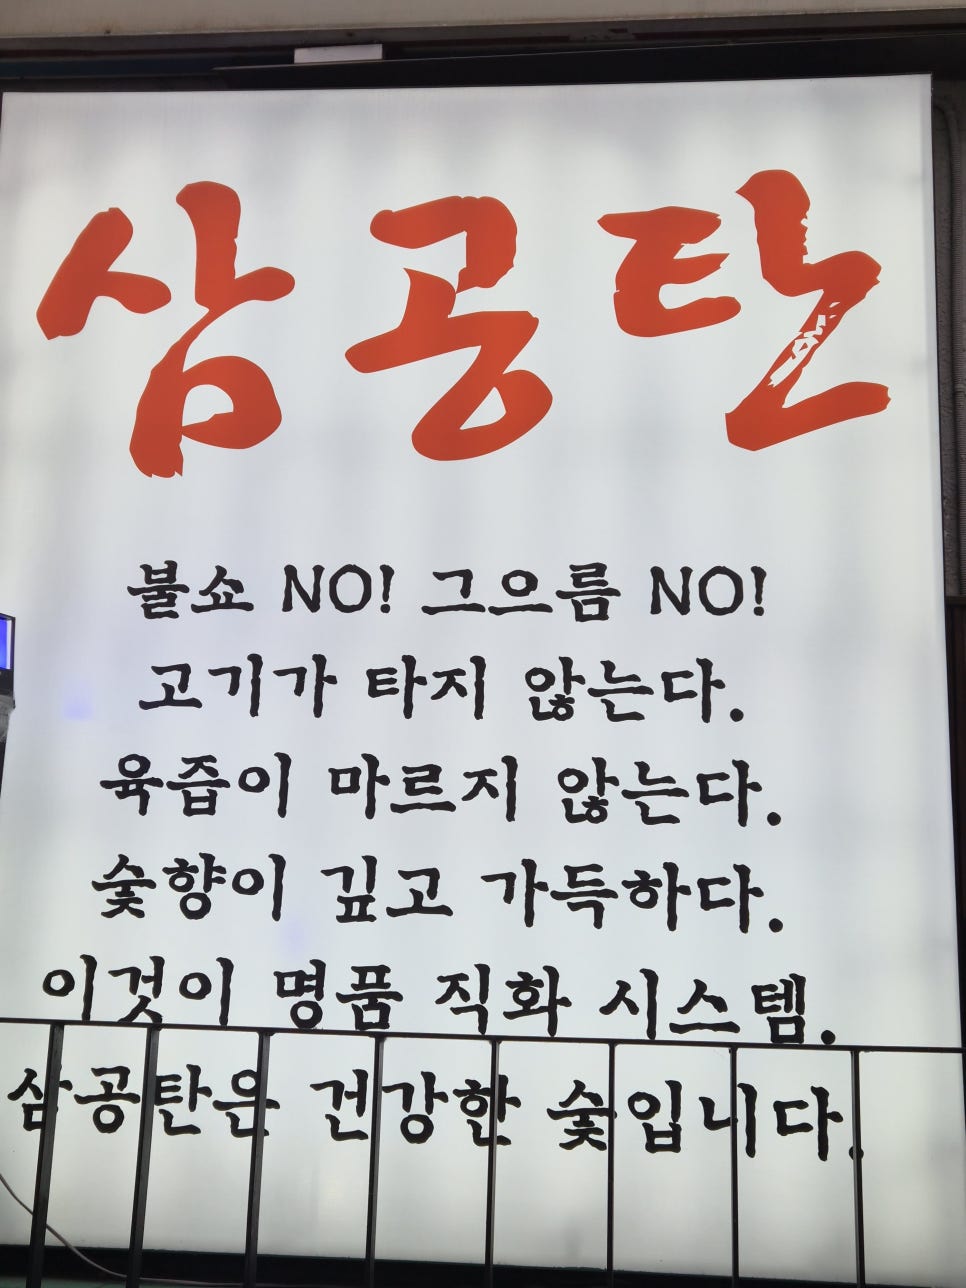 삼공탄
불쇼 NO! 그으름 NO!
고기가 타지 않는다.
육즙이 마르지 않는다.
숯향이 깊고 가득하다.
이것이 명품 직화 시스템.
삼공탄은 건강한 숯입니다.